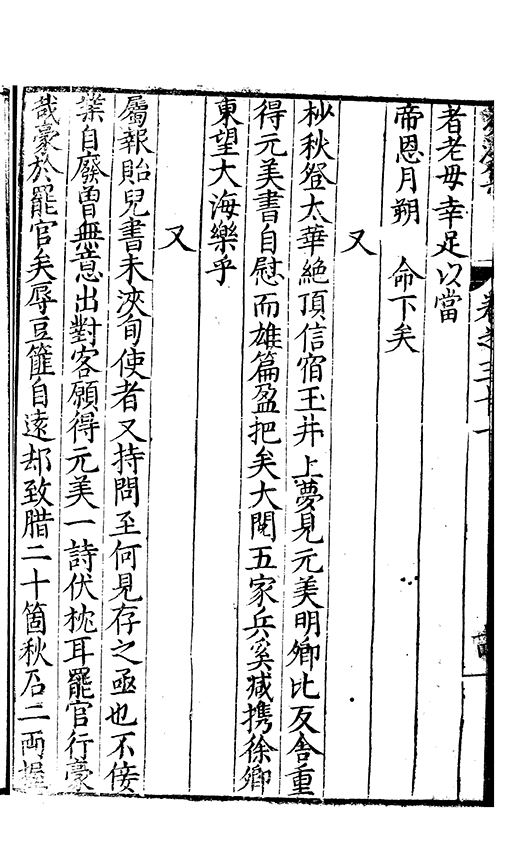 者老毋幸足以當
帝恩月朔 命下矣
又
杪秋登太華絶頂信宿玉井上夢見元美明卿比反舍重
得元美書自慰而雄篇盈把矣大閱五家兵奚减携徐卿
東望大海樂乎
又
屬報貽兒書未浹旬使者又持問至何見存之亟也不佞
業自廢曽無意出對客願得元美一詩伏枕耳罷官行豪
哉豪於罷官矣辱豆籬自遠却致腊二十箇秋石二兩握
卷之三十一